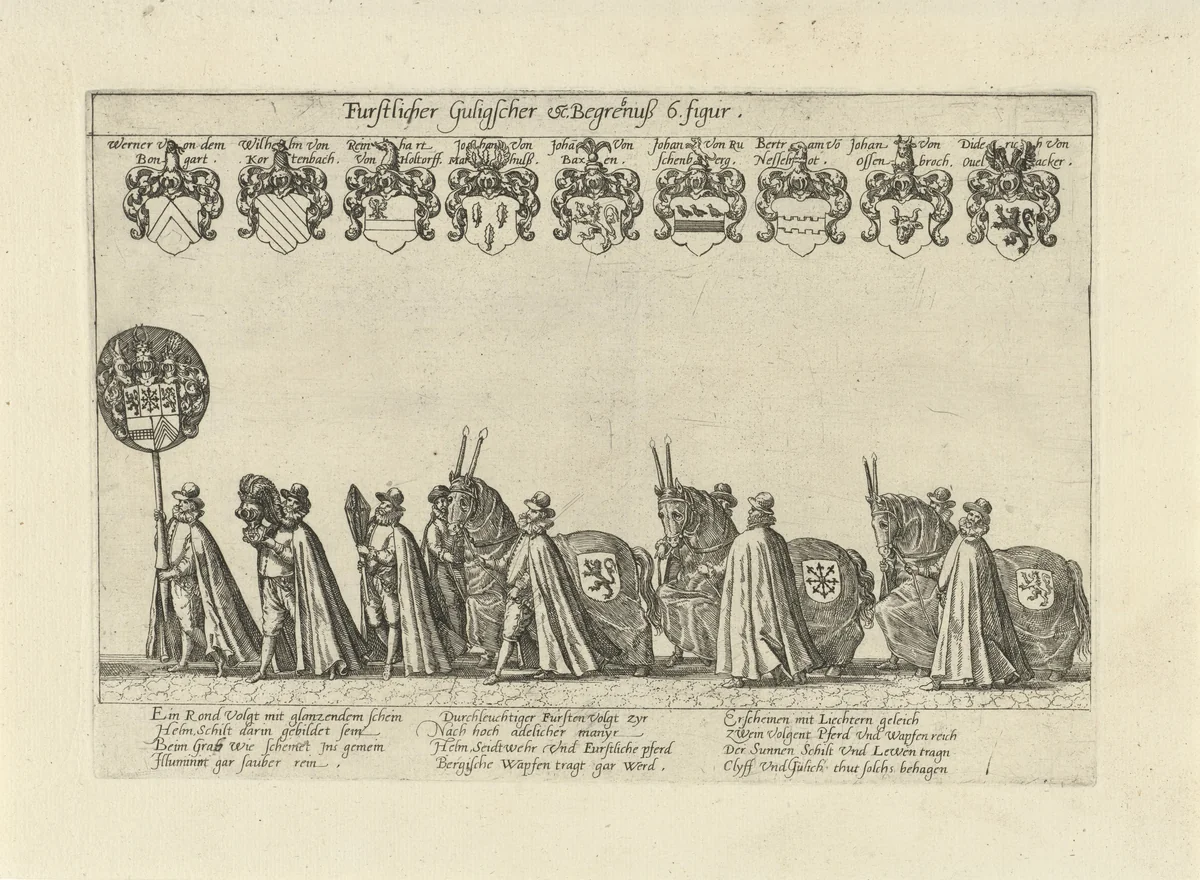 Furstlicher Guligscher &c. Begrebnuß 6. figur.
Werner von dem Bongart.
Wilhelm von Kortenbach.
Reinhart Von Holtorff.
Johan Von
Johan Von Baxen.
Johan Von Ruschenberg.
Bertram vō Nesselrot.
Johan Von Ossenbroch.
Diderich Von Ouelacker.
Ein Rond Volgt mit glanzendem schein
Helm, Schilt darin gebildet sein
Beim Grab Wie scheinet Ins gemein
Illuminirt gar sauber rein.
Durchleuchtiger Fursten Volgt zyr
Nach hoch adelicher manyr
Helm, Seidtwehr Vnd Furstliche pferd
Bergische Wapfen tragt gar Werd.
Erscheinen mit Liechtern geleich
Zwein Volgent Pferd Vnd Wapfen reich
Der Sunnen Schilt Vnd Lewen tragn
Clyff Vnd Gülich thut solchs behagen